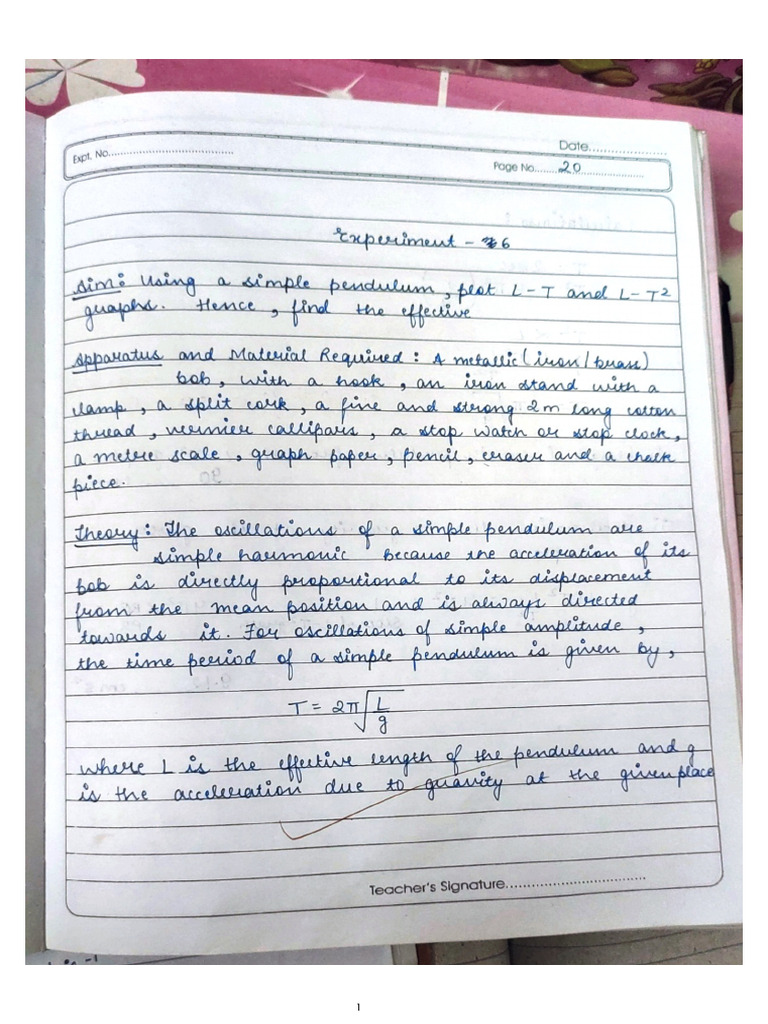 Date....................
Expt. No....................................
Page No.......20......................
Experiment - 6
Aim: Using a simple pendulum, plot L-T and L-T²
graphs. Hence, find the effective
Apparatus and Material Required: A metallic (iron/brass)
bob, with a hook, an iron stand with a
clamp, a split cork, a fine and strong 2m long cotton
thread, vernier callipars, a stop watch or stop clock,
a metre scale, graph paper, pencil, eraser and a chalk
piece.
Theory: The oscillations of a simple pendulum are
simple harmonic because the acceleration of its
bob is directly proportional to its displacement
from the mean position and is always directed
towards it. For oscillations of simple amplitude,
the time period of a simple pendulum is given by,
T = 2π√(L/g)
where L is the effective length of the pendulum and g
is the acceleration due to gravity at the given place
Teacher's Signature..................................
1